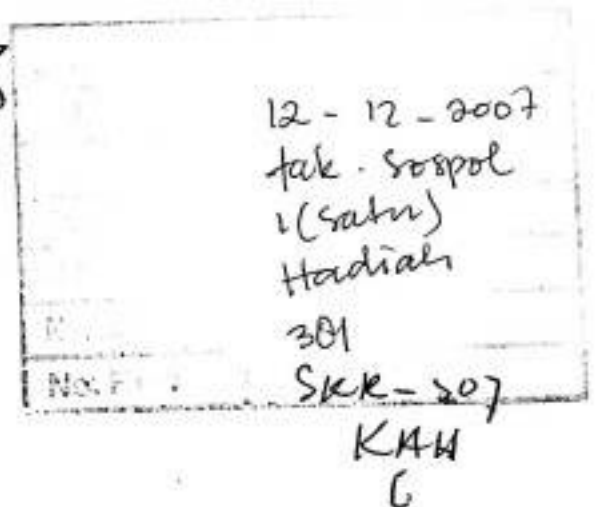 12 - 12 - 2007
fak. Sospol
1 (satu)
Hadiah
301
SKR - S07
KAH